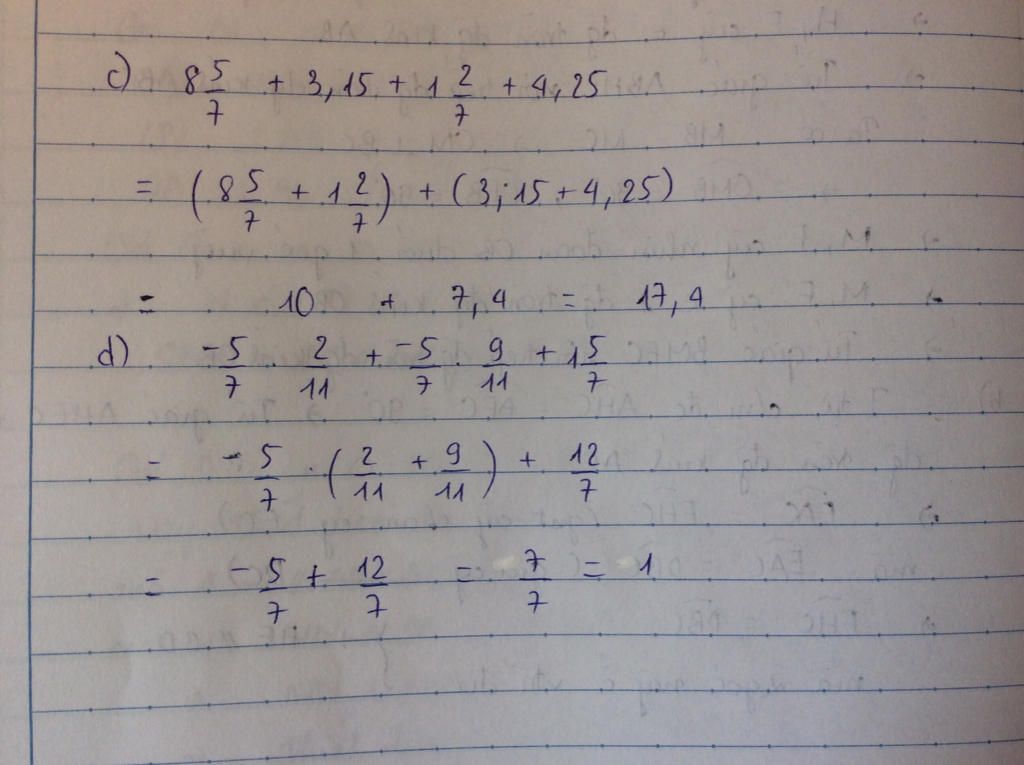 c) 8 5/7 + 3,15 + 1 2/7 + 4,25
= (8 5/7 + 1 2/7) + (3,15 + 4,25)
= 10 + 7,4 = 17,4
d) -5/7 . 2/11 + -5/7 . 9/11 + 1 5/7
= -5/7 . (2/11 + 9/11) + 12/7
= -5/7 + 12/7 = 7/7 = 1